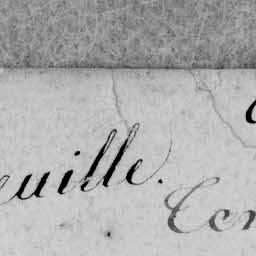 euille.
Cer